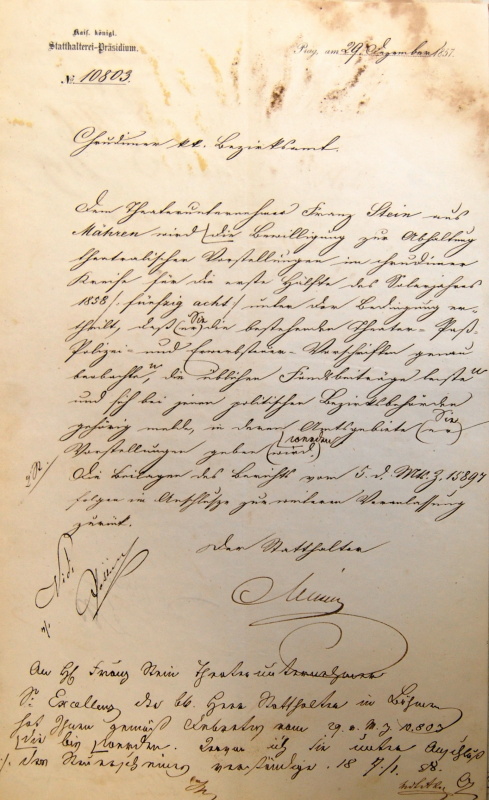 Kais. königl.
Statthalterei-Präsidium.
Prag, am 29 Dezember 1857.
№ 10803.
Chrudimer kk. Bezirksamt.
Dem Theaterunternehmer Franz Stein aus
Mähren wird die Bewilligung zur Abhaltung
theatralischer Vorstellungen im chrudimer
Kreise für die erste Hälfte des Solarjahres
1858 /: fünfzig acht / unter der Bedingung er-
theilt, daß er Sie die bestehenden Theater- Paß-
Polizei- und Erwerbsteuer-Vorschriften genau
beobachte, die üblichen Fondsbeiträge leiste
und sich bei jenen politischen Bezirksbehörden
gehörig melde, in deren Amtsgebiete er Sie
Vorstellungen geben wird. werden
Die Beilagen des Berichts vom 5. d. Mts. Z. 15897
folgen im Anschluße zur weitern Veranlassung
zurück.
Der Statthalter
An H. Franz Stein Theaterunternehmer
Se Excellenz der kk. Herr Statthalter in Böhmen
hat Ihnen gemäß vom 29. v. M. Z. 10.803
die bis werden. Sie unter Anschluß
des verständige. 18 7/1 58.